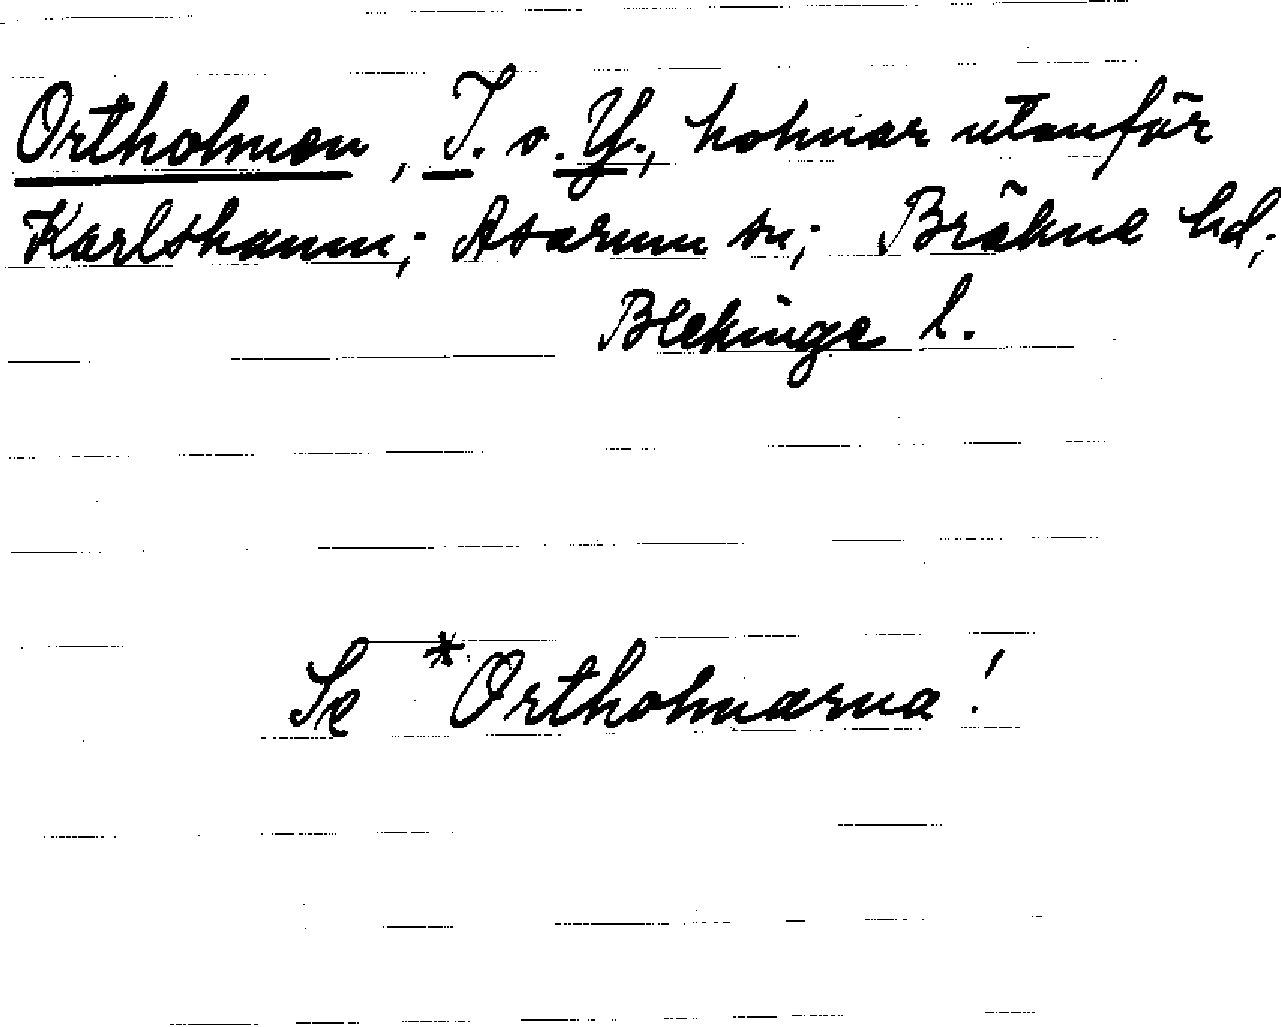 Ortholmen, I. o. Y., holmar utanför
Karlshamn; Asarum sn; Bräkne hd;
Blekinge l.
Se *Ortholmarna!